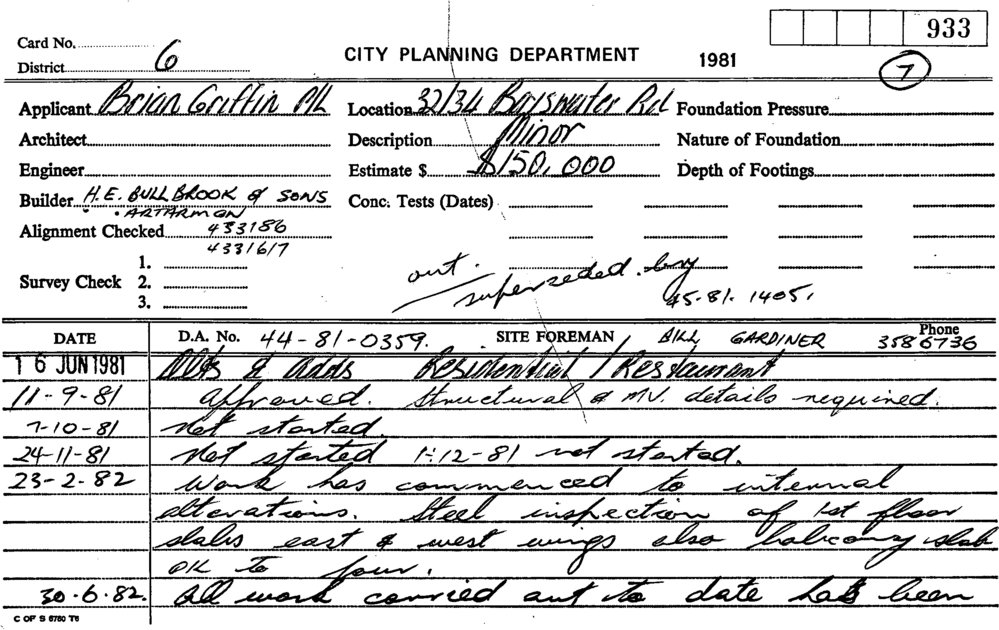 933
Card No.
CITY PLANNING DEPARTMENT 1981
District 6
7
Applicant Brian Griffin P/L Location 32/34 Bayswater Rd Foundation Pressure
Architect Description Minor Nature of Foundation
Engineer Estimate $ $150,000 Depth of Footings
Builder H.E. BULLBROOK & SONS Conc. Tests (Dates)
ARTARMON
Alignment Checked 433186
4331617
1.
Survey Check 2.
3.
out. superseded by
45-81-1405.
DATE D.A. No. 44-81-0359. SITE FOREMAN BILL GARDINER Phone 3586736
16 JUN 1981 Alts & adds Residential / Restaurant
11-9-81 approved. Structural & MV. details required.
7-10-81 Not started.
24-11-81 Not started 1-12-81 not started.
23-2-82 Work has commenced to internal
alterations. Steel inspection of 1st floor
slabs east & west wings also balcony slab
OK to pour.
30-6-82. All work carried out to date has been
C OF S 6780 T6